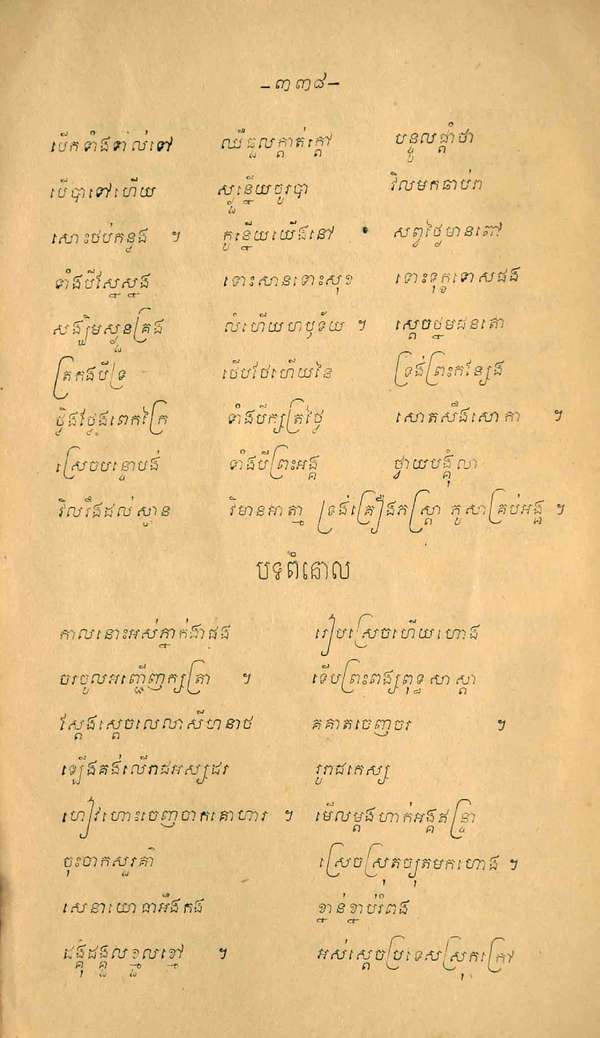 -៣៣៨-
បើកទាំងទាល់ទៅ ឈឺឆ្អួលក្ដាត់ក្ដៅ បន្ទូលផ្ដាំថា
បើបាទៅហើយ ស្ងួនើយចូរបា វិលមកឆាប់រា
សោះថប់កន្លង ។ កូនើយយើងនៅ សព្វថ្ងៃមានពៅ
ទាំងបីស្មៃស្នង ទោះសានទោះសុខ ទោះទុក្ខទោសផង
សង្ឃឹមស្ងួនត្រង លំហើយហឫទ័យ ។ ស្ដេចថ្មមជនគោ
ត្រកងបីទ្រ ថើបថែហើយនៃ ទ្រង់ព្រះកន្សែង
ថ្លឹងថ្លែងពេកក្រៃ ទាំងបីក្សត្រថ្លៃ សោតសឹងសោកា ។
ស្រេចបន្ទោបង់ ទាំងបីព្រះអង្គ ថ្វាយបង្គំលា
វិលរឹងដល់ស្ថាន វិមានអាត្មា ទ្រង់គ្រឿងភស្ត្រា ភូសាគ្រប់អង្គ ។
បទពំនោល
កាលនោះអស់ភ្នាក់ងារផង រៀបស្រេចហើយហោង
ចរចូលអញ្ជើញក្សត្រា ។ ទើបព្រះពង្សពុទ្ធសាស្ដា
ស្ដែងស្ដេចលេលាសីហនាថ គគាតចេញចរ ។
ឡើងគង់លើរាជអស្សដរ រូរាជកេស្ស
ហៀវហោះចេញចាកគោហារ ។ មើលម្ដងហាក់អង្គឥន្ទ្រា
ចុះចាកសួរគា៌ ស្រេចស្រុតច្យុតមកហោង ។
សេនាយោធាអឹងកង ខ្នាន់ខ្នាប់រំពង
ដង្គុំដង្គួលខ្មួលខ្មៅ ។ អស់ស្ដេចប្រទេសស្រុកក្រៅ